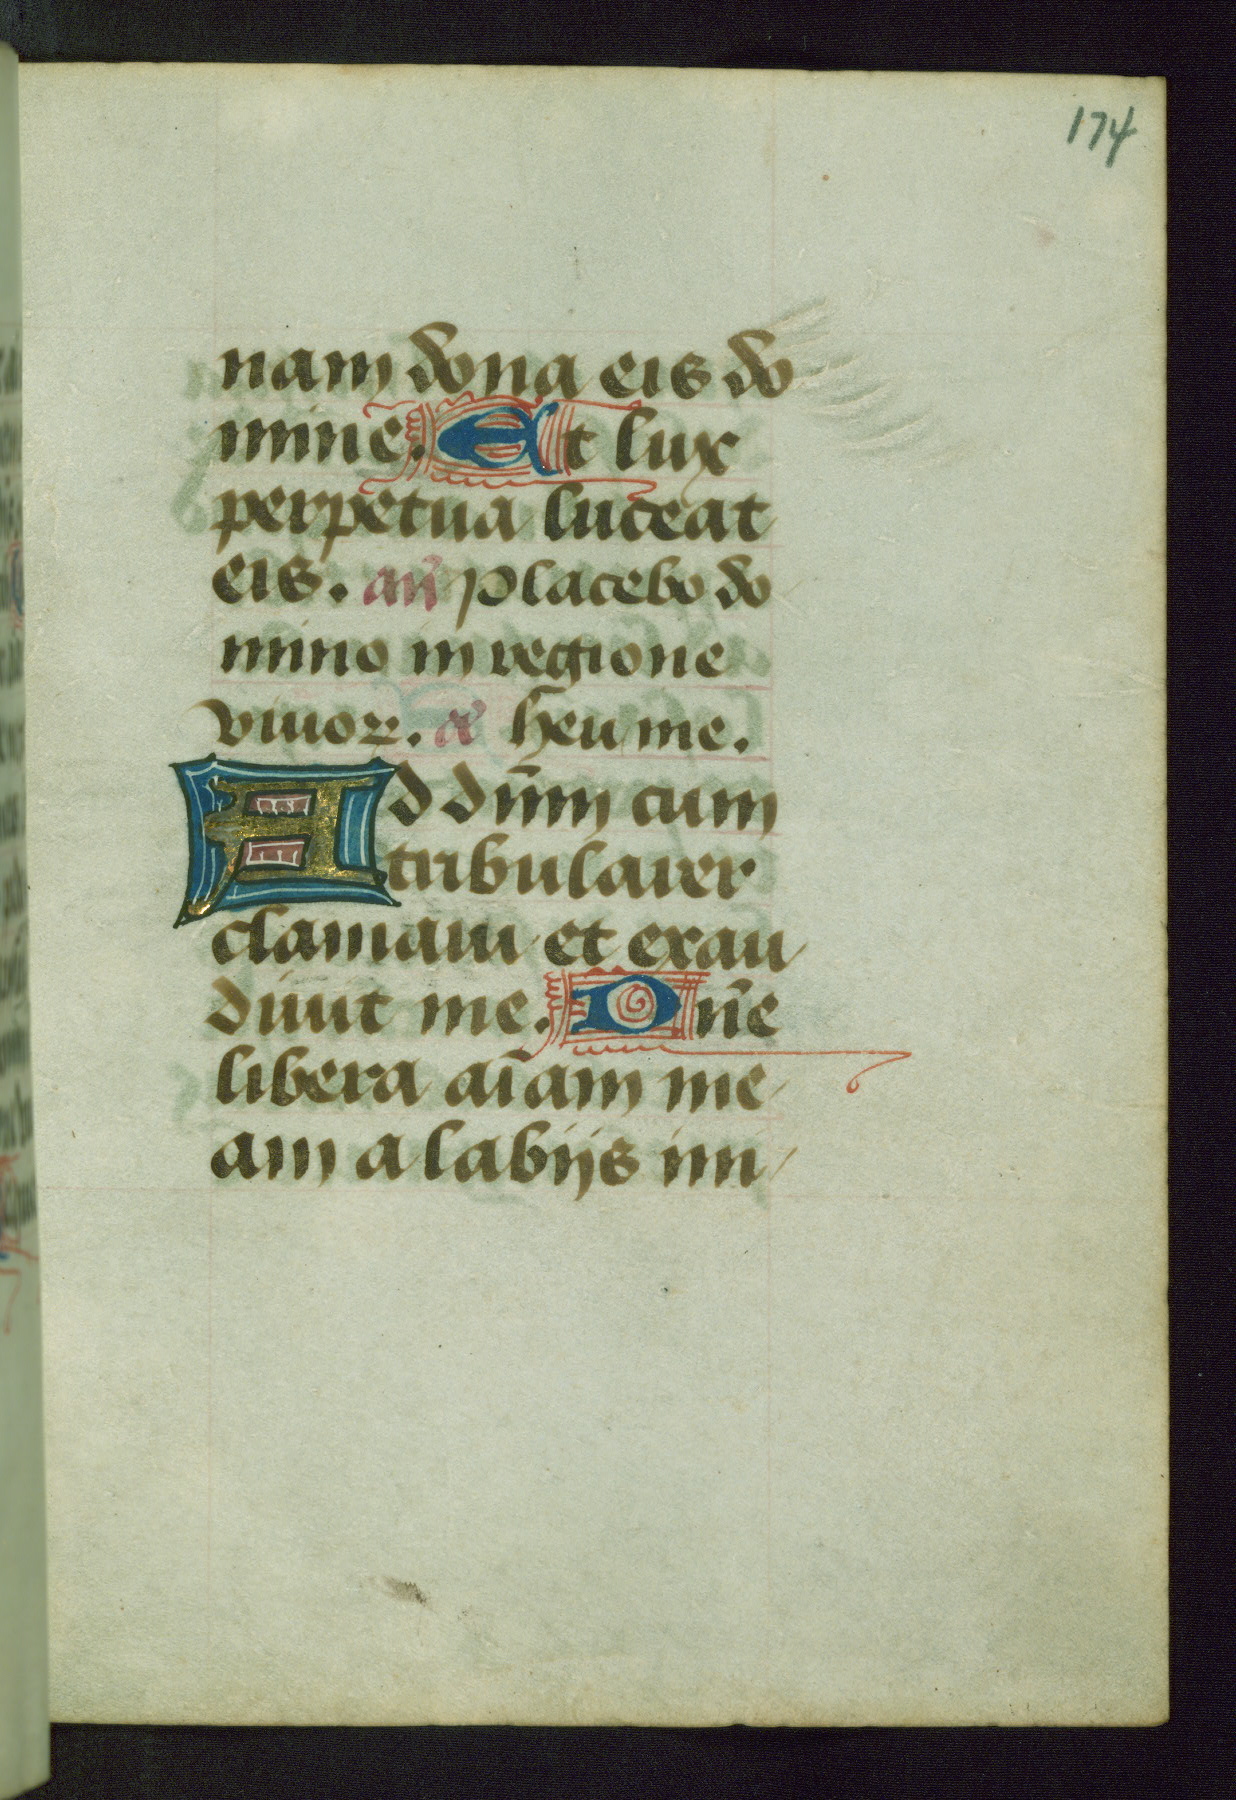 174
nam dona eis do
mine. Et lux
perpetua luceat
eis. añ Placebo do
mino in regione
viuoꝝ. a᷒ heu me.
Ad dn̄m cum
tribularer
clamaui et exau
diuit me. Dn̄e
libera aīam me
am a labijs ini